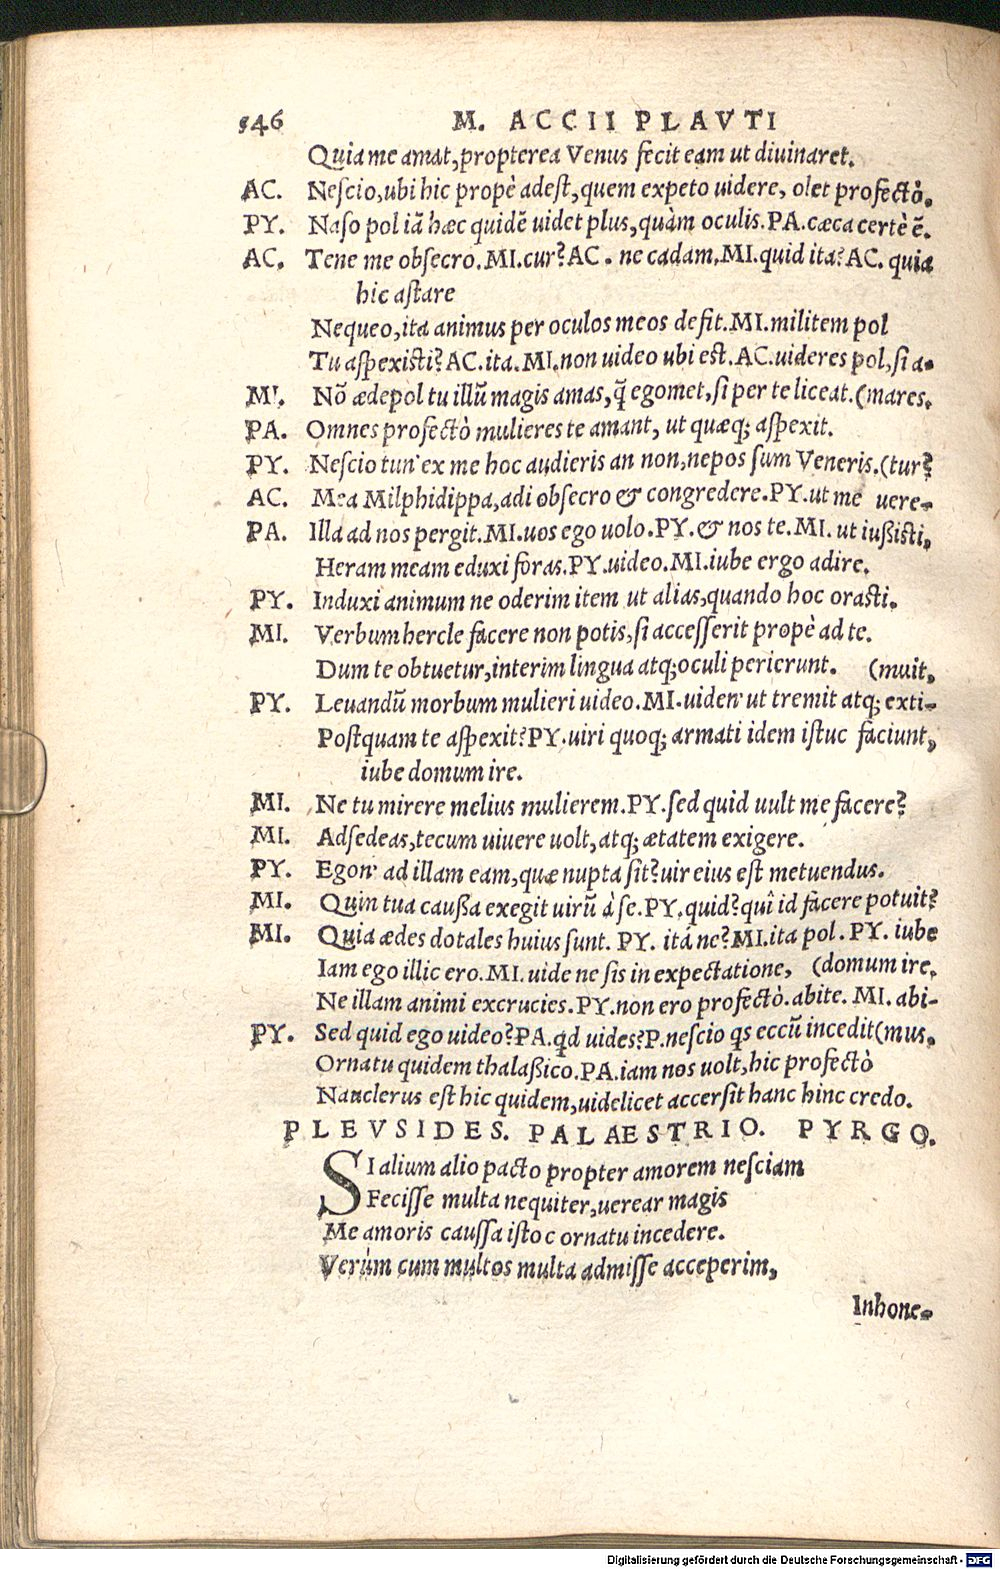 546 M. ACCII PLAVTI
Quia me amat, propterea Venus fecit eam ut divinaret.
AC. Nescio, ubi hic propè adest, quem expeto uidere, olet profectò.
PY. Naso pol iã hæc quidẽ uidet plus, quàm oculis. PA. cæca certè ẽ.
AC. Tene me obsecro. MI. cur? AC. ne cadam. MI. quid ita? AC. quia
hic astare
Nequeo, ita animus per oculos meos defit. MI. militem pol
Tu aspexisti? AC. ita. MI. non uideo ubi est. AC. uideres pol, si a-
MI. Nõ ædepol tu illũ magis amas, q̃ egomet, si per te liceat. (mares.
PA. Omnes profectò mulieres te amant, ut quæq; aspexit.
PY. Nescio tun' ex me hoc audieris an non, nepos sum Veneris. (tur?
AC. Mea Milphidippa, adi obsecro & congredere. PY. ut me uere-
PA. Illa ad nos pergit. MI. uos ego uolo. PY. & nos te. MI. ut iußisti,
Heram meam eduxi foras. PY. uideo. MI. iube ergo adire.
PY. Induxi animum ne oderim item ut alias, quando hoc orasti.
MI. Verbum hercle facere non potis, si accesserit propè ad te.
Dum te obtuetur, interim lingua atq; oculi perierunt. (muit.
PY. Leuandũ morbum mulieri uideo. MI. uiden' ut tremit atq; exti-
Postquam te aspexit? PY. uiri quoq; armati idem istuc faciunt,
iube domum ire.
MI. Ne tu mirere melius mulierem. PY. sed quid uult me facere?
MI. Ad se deas, tecum uiuere uolt, atq; ætatem exigere.
PY. Egon' ad illam eam, quæ nupta sit? uir eius est metuendus.
MI. Quin tua caußa exegit uirũ à se. PY. quid? quî id facere potuit?
MI. Quia ædes dotales huius sunt. PY. itá ne? MI. ita pol. PY. iube
Iam ego illic ero. MI. uide ne sis in expectatione, (domum ire.
Ne illam animi excrucies. PY. non ero profectò. abite. MI. abi-
PY. Sed quid ego uideo? PA. qd uides? P. nescio qs eccũ incedit (mus.
Ornatu quidem thalaßico. PA. iam nos uolt, hic profectò
Nauclerus est hic quidem, uidelicet accersit hanc hinc credo.
PLEVSIDES. PALAESTRIO. PYRGO.
SI alium alio pacto propter amorem nesciam
Fecisse multa nequiter, uerear magis
Me amoris caussa istoc ornatu incedere.
Verùm cum multos multa admisse acceperim,
Inhone-
Digitalisierung gefördert durch die Deutsche Forschungsgemeinschaft - DFG